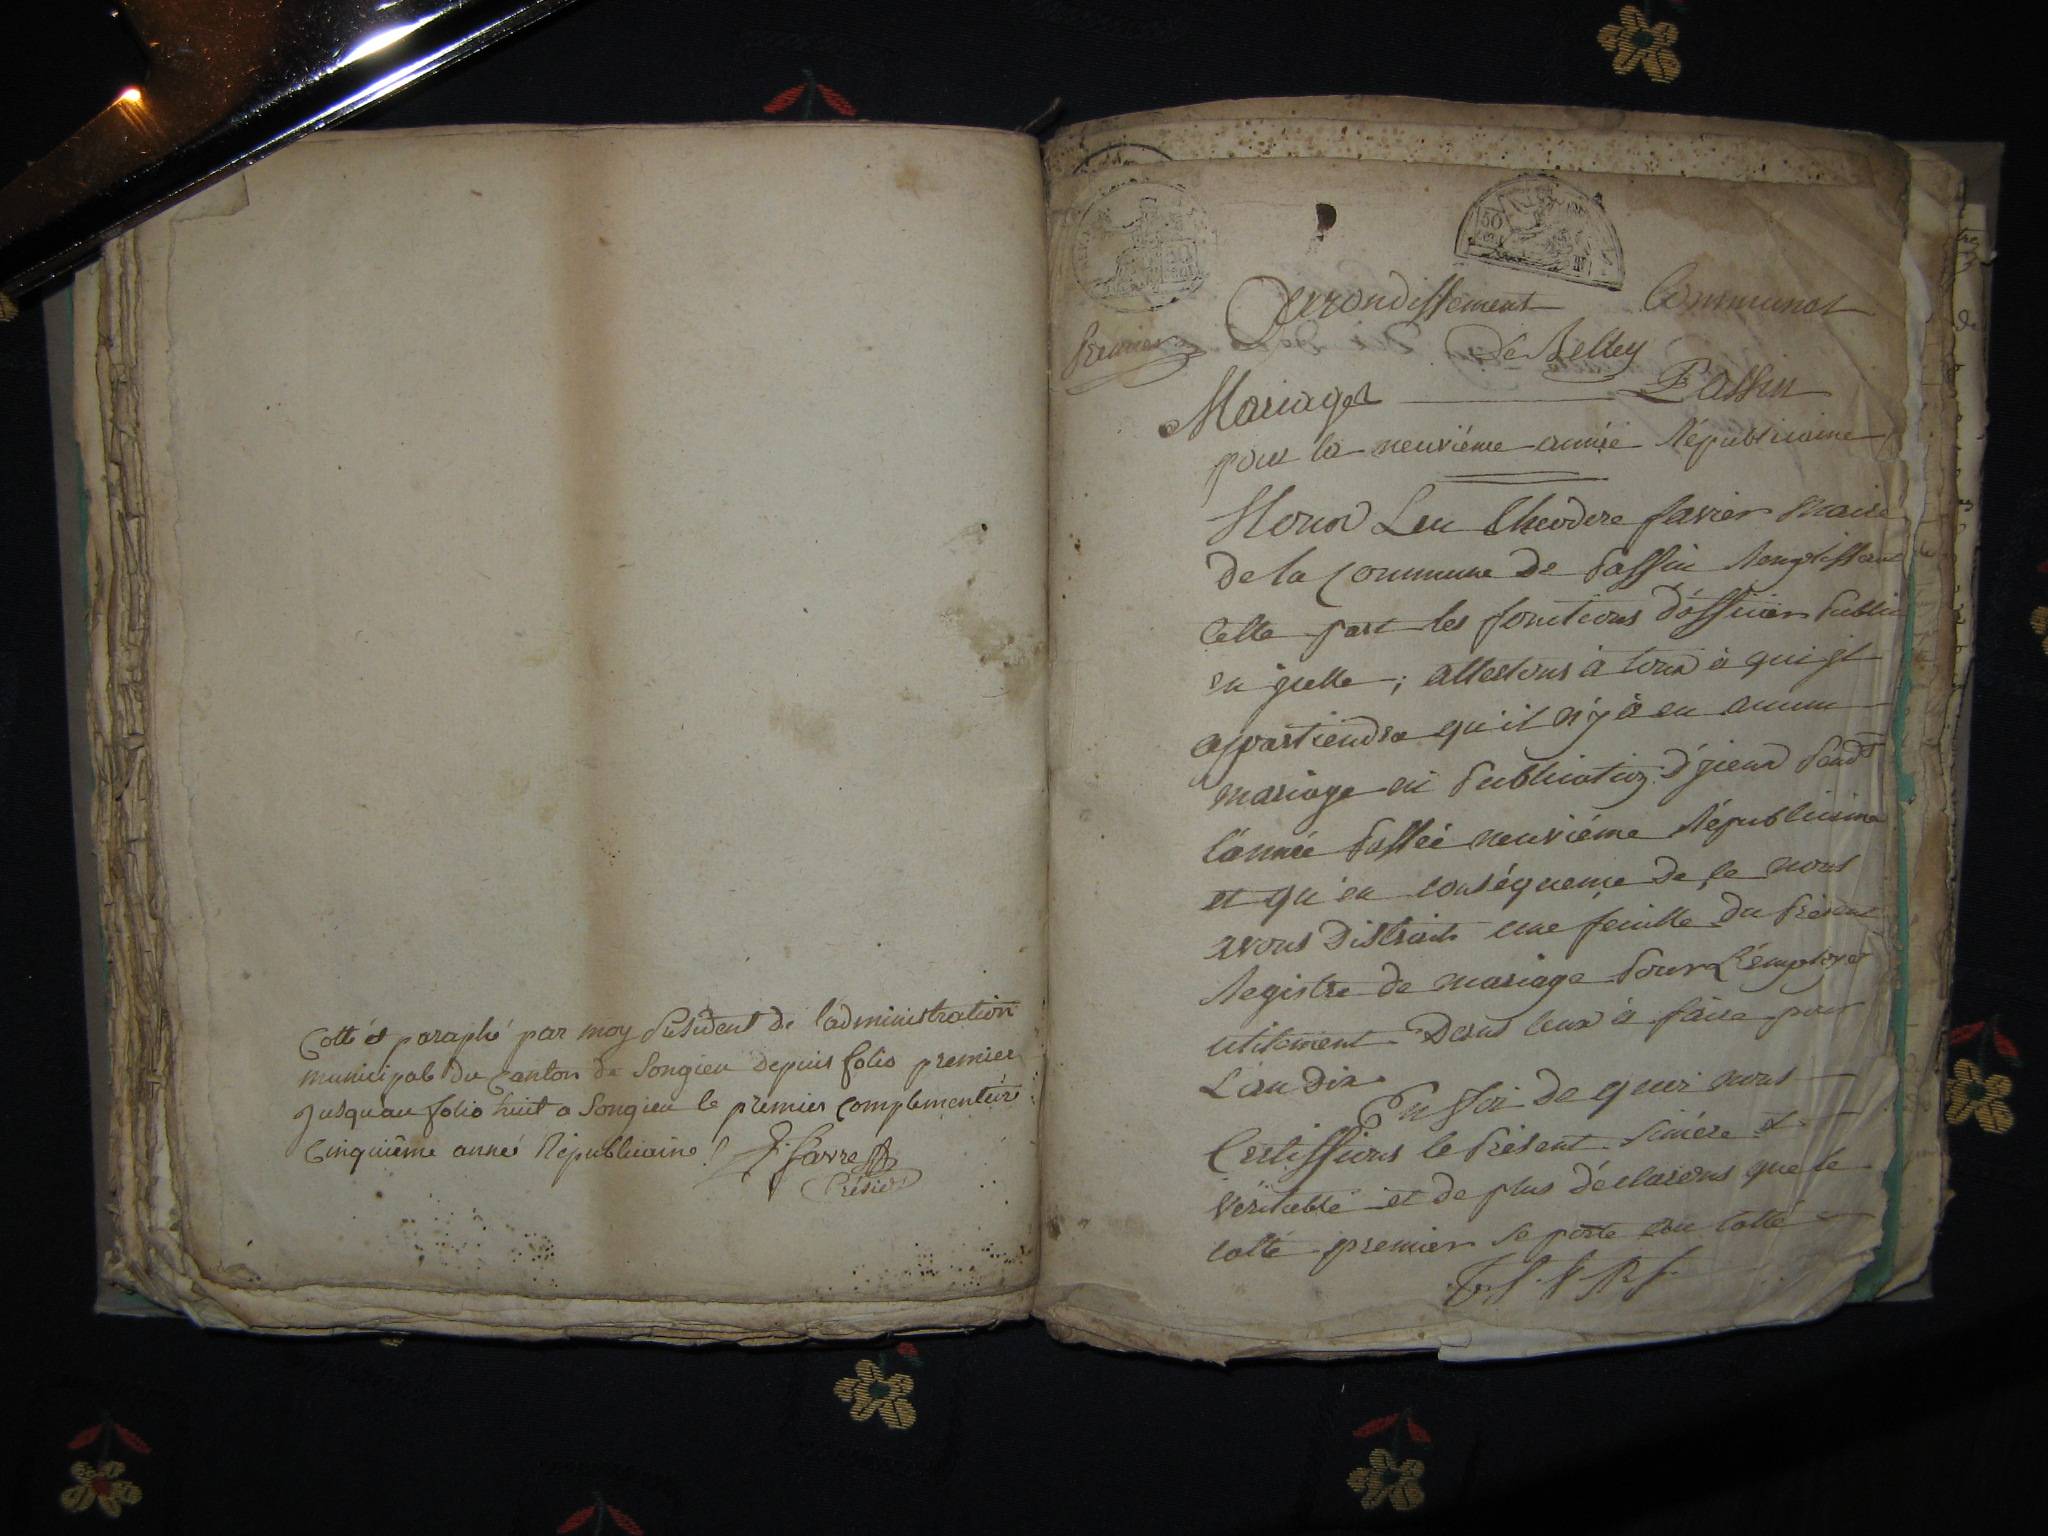 Cotté et paraphé par moy président de l'administration
municipale du Canton de Songieu depuis folio premier
Jusquau folio huit a Songieu le premier complementaire
Cinquiême année Républicaine
Favre
Présidt
Premier
Arrondissement Communal
de Belley
Mariages Passin
pour la neuviéme année Républicaine
Nous Theodore Favier Maire
de la Commune de Passin Remplissant
Cette part les fonctions d'officier Public
en jcelle ; attestons à tous à qui jl
appartiendra qu'il n'y à eu aucun
mariage ni Publication d'jceux Pendt
l'année Passée neuviéme Républicaine
et qu'en conséquence de ce nous
avons Distrait une feuille du Présent
Registre de mariage Pour L'employer
utilement Dans ceux à faire pour
L'an dix
En Foi de quoi nous
Certiffions le Présent Sincére et
Véritable et de plus déclarons que le
cotté premier se porte au cotté